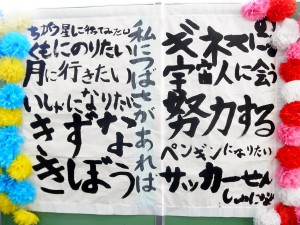 ちがう星に行ってみたい
くもにのりたい
月に行きたい
いしゃになりたい
きずな
きぼう
私につばさがあれば
ギネスに
宇宙人に会う
努力する
ペンギンになりたい
サッカーせん
しゅになる